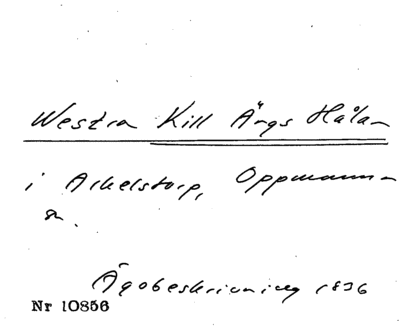 Westra Kill Ängs Hålan
i Arkelstorp, Oppmanna
sn.
Ägobeskrivning 1836
Nr 10856